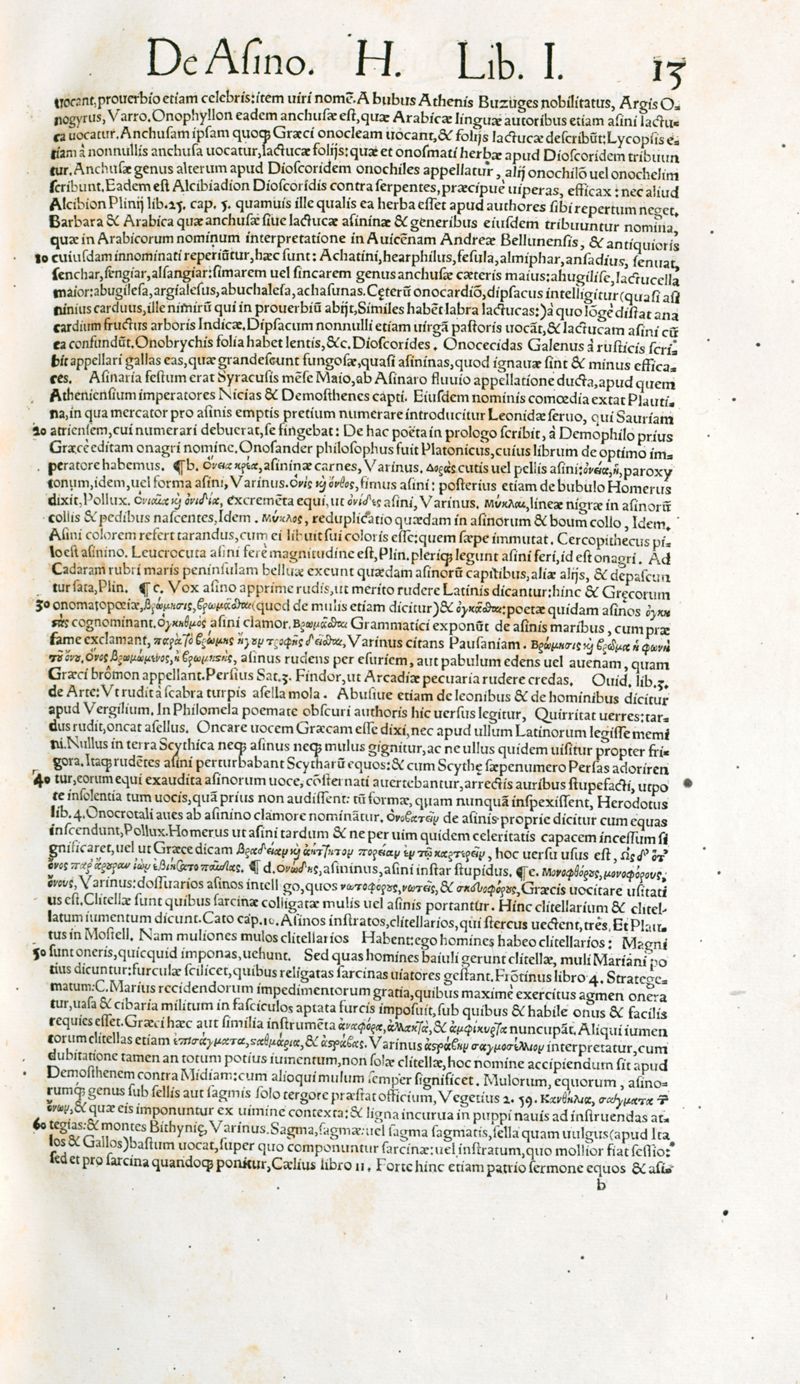 De Asino. H. Lib. I. 13
uocant, prouerbio etiam celebris: item uiri nomē. A bubus Athenis Buzuges nobilitatus, Argis O-
nogyrus, Varro. Onophyllon eadem anchusæ est, quæ Arabicæ linguæ autoribus etiam asini lactu-
ca uocatur. Anchusam ipsam quoq; Græci onocleam uocant, & folijs lactucæ describūt: Lycopsis e-
tiam à nonnullis anchusa uocatur, lactucæ folijs: quæ et onosmati herbæ apud Dioscoridem tribuun
tur. Anchusæ genus alterum apud Dioscoridem onochiles appellatur, alij onochilō uel onochelim
scribunt. Eadem est Alcibiadion Dioscoridis contra serpentes, præcipue uiperas, efficax: nec aliud
Alcibion Plinij lib. 25. cap. 5. quamuis ille qualis ea herba esset apud authores sibi repertum neget.
Barbara & Arabica quæ anchusæ siue lactucæ asininæ & generibus eiusdem tribuuntur nomina,
quæ in Arabicorum nominum interpretatione in Auicēnam Andreæ Bellunensis, & antiquioris
10 cuiusdam innominati reperiūtur, hæc sunt: Achatini, hearphilus, fesula, almiphar, ansadius, senuat,
senchar, sengiar, alsangiar: simarem uel sincarem genus anchusæ cæteris maius: ahugilise, lactucella
maior: abugilesa, argialesus, abuchalesa, achasunas. Cęterū onocardiō, dipsacus intelligitur (quasi asi
ninius carduus, ille nimirū qui in prouerbiū abijt, Similes habēt labra lactucas:) à quo lōge distat ana
cardium fructus arboris Indicæ. Dipsacum nonnulli etiam uirgā pastoris uocāt, & lactucam asini cū
ea confundūt. Onobrychis folia habet lentis, &c. Dioscorides. Onocecidas Galenus à rusticis scri-
bit appellari gallas eas, quæ grandes sunt fungosæ, quasi asininas, quod ignauæ sint & minus effica-
ces. Asinaria festum erat Syracusis mēse Maio, ab Asinaro fluuio appellatione ducta, apud quem
Atheniensium imperatores Nicias & Demosthenes capti. Eiusdem nominis comœdia extat Plauti-
na, in qua mercator pro asinis emptis pretium numerare introducitur Leonidæ seruo, qui Sauriam
20 atriensem, cui numerari debuerat, se fingebat: De hac poëta in prologo scribit, à Demophilo prius
Græcè editam onagri nomine. Onosander philosophus fuit Platonicus, cuius librum de optimo im-
peratore habemus. ¶ b. Ὄνεια κρέα, asininæ carnes, Varinus. Δορὰς cutis uel pellis asini: ὀνεία, ἡ, paroxy
tonum, idem, uel forma asini, Varinus. Ὄνις καὶ ὄνθος, fimus asini: posterius etiam de bubulo Homerus
dixit, Pollux. excremēta equi, ut ὀνίδες asini, Varinus. Μύκλαι, lineæ nigræ in asinorū
collis & pedibus nascentes, Idem. Μύκλος, reduplicatio quædam in asinorum & boum collo, Idem.
Asini colorem refert tarandus, cum ei libuit sui coloris esse: quem sæpe immutat. Cercopithecus pi-
lo est asinino. Leucrocuta asini ferè magnitudine est, Plin. pleriq; legunt asini feri, id est onagri. Ad
Cadaram rubri maris peninsulam belluæ exeunt quædam asinorū capitibus, aliæ alijs, & depascun
tur sata, Plin. ¶ c. Vox asino apprime rudis, ut merito rudere Latinis dicantur: hinc & Gręcorum
30 onomatopœiæ, βρώμησις, βρωμᾶσθαι (quod de mulis etiam dicitur) & ὀγκᾶσθαι: poetæ quidam asinos ὀγκη
τὰς cognominant. Ὀγκηθμὸς asini clamor. Βρωμᾶσθαι Grammatici exponūt de asinis maribus, cum præ
fame exclamant, παρὰ τὸ βρώμης ἤγουν τροφῆς δεῖσθαι, Varinus citans Pausaniam. Βρώμησις καὶ ἡ φωνὴ
τοῦ ὄνου, ὄνος βρωμώμενος, ἢ βρωμητής, asinus rudens per esuriem, aut pabulum edens uel auenam, quam
Græci brômon appellant. Persius Sat. 3. Findor, ut Arcadiæ pecuaria rudere credas. Ouid. lib. 3.
de Arte: Vt rudit à scabra turpis asella mola. Abusiue etiam de leonibus & de hominibus dicitur
apud Vergilium. In Philomela poemate obscuri authoris hic uersus legitur, Quirritat uerres: tar-
dus rudit, oncat asellus. Oncare uocem Græcam esse dixi, nec apud ullum Latinorum legisse memi
ni. Nullus in terra Scythica neq; asinus neq; mulus gignitur, ac ne ullus quidem uisitur propter fri-
gora. Itaq; rudētes asini perturbabant Scytharū equos: & cum Scythę sæpenumero Persas adoriren
40 tur, eorum equi exaudita asinorum uoce, cōsternati auertebantur, arrectis auribus stupefacti, utpo
te insolentia tum uocis, quā prius non audissent: tū formæ, quam nunquā inspexissent, Herodotus
lib. 4. Onocrotali aues ab asinino clamore nominātur. Ὀνοβατεῖν de asinis proprie dicitur cum equas
inscendunt, Pollux. Homerus ut asini tardum & ne per uim quidem celeritatis capacem incessum si
gnificaret, uel ut Græce dicam πορείαν ἐν τῷ καρτερεῖν, hoc uersu usus est, ὡς δ' ὅτ'
ὄνος παρ' ἄρουραν ἰὼν ἐβιήσατο παῖδας. ¶ d. Ὀνώδης, asininus, asini instar stupidus. ¶ e. Μονοφθόρους, μονοφόρους,
ὄνους, Varinus: dossuarios asinos intelligo, quos νωτοφόρους, νωτεῖς, & σκευοφόρους, Græcis uocitare usitati
us est. Clitellæ sunt quibus sarcinæ colligatæ mulis uel asinis portantur. Hinc clitellarium & clitel-
latum iumentum dicunt. Cato cap. 10. Asinos instratos, clitellarios, qui stercus uectent, três. Et Plau-
tus in Mostell. Nam muliones mulos clitellarios Habent: ego homines habeo clitellarios: Magni
50 sunt oneris, quicquid imponas, uehunt. Sed quas homines baiuli gerunt clitellæ, muli Mariani po
tius dicuntur: furculæ scilicet, quibus religatas sarcinas uiatores gestant. Frōtinus libro 4. Stratege-
matum: C. Marius recidendorum impedimentorum gratia, quibus maximè exercitus agmen onera
tur, uasa & cibaria militum in fasciculos aptata furcis imposuit, sub quibus & habile onus & facilis
requies esset. Græci hæc aut similia instrumēta ἀναφόρα, ἀλλακτὰ, & ἀμφίκυρτα nuncupāt. Aliqui iumen
torum clitellas etiam ἐπισάγματα, σαθμάρια, & ἀσράβας. Varinus ἀσράβην σαγμοσέλλιον interpretatur, cum
dubitatione tamen an totum potius iumentum, non solæ clitellæ, hoc nomine accipiendum sit apud
Demosthenem contra Midiam: cum alioqui mulum semper significet. Mulorum, equorum, asino-
rumq; genus sub sellis aut sagmis solo tergore præstat officium, Vegetius 2. 59. Κανθήλια, σάγματα τῶν
ὄνων, & quæ eis imponuntur ex uimine contexta: & ligna incurua in puppi nauis ad instruendas at-
60 tegias: & montes Bithynię, Varinus. Sagma, sagmæ: uel sagma sagmatis, sella quam uulgus (apud Ita
los & Gallos) bastum uocat, super quo componuntur sarcinæ: uel instratum, quo mollior fiat sessio:
sed et pro sarcina quandoq; ponitur, Cælius libro 11. Forte hinc etiam patrio sermone equos & asi-
b